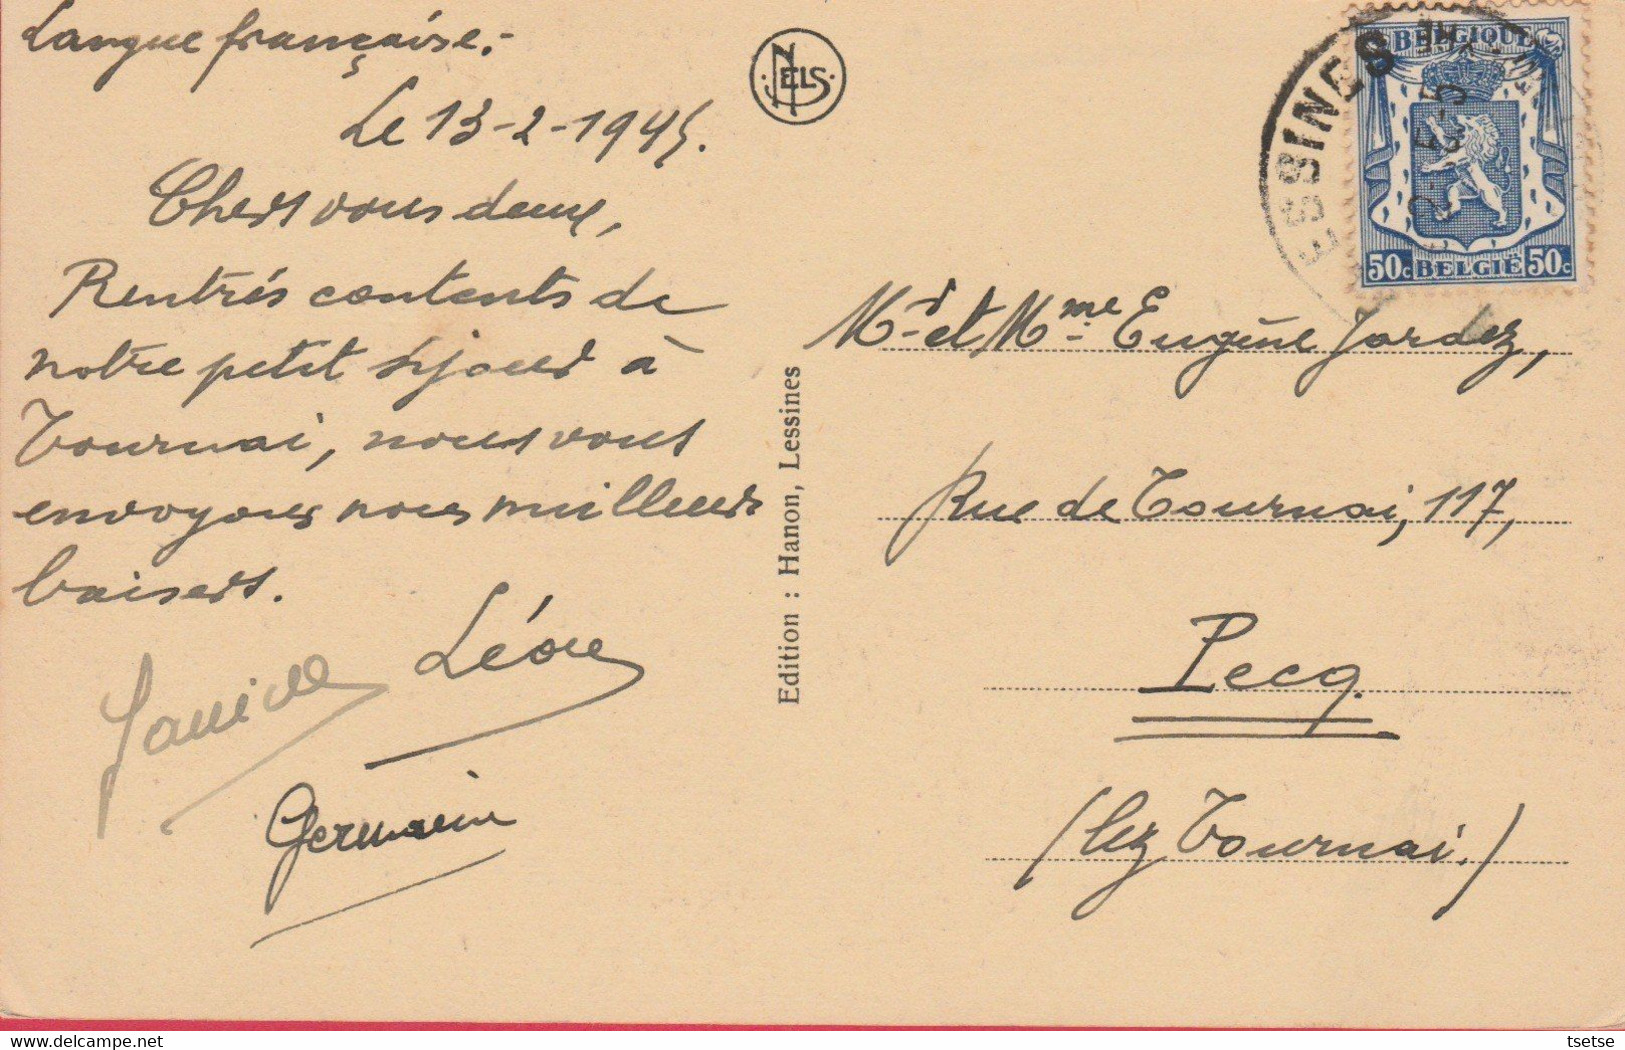 Langue française.-
Le 13-2-1945.
Chers vous deux,
Rentrés contents de
notre petit séjour à
Tournai, nous vous
envoyons nos meilleurs
baisers.
Léon
Germain
NELS
Edition : Hanon, Lessines
LESSINES
BELGIQUE
50c BELGIË 50c
Mr et Mme Eugène Jardez,
Rue de Tournai, 117,
Pecq.
(lez Tournai.)
tsetse